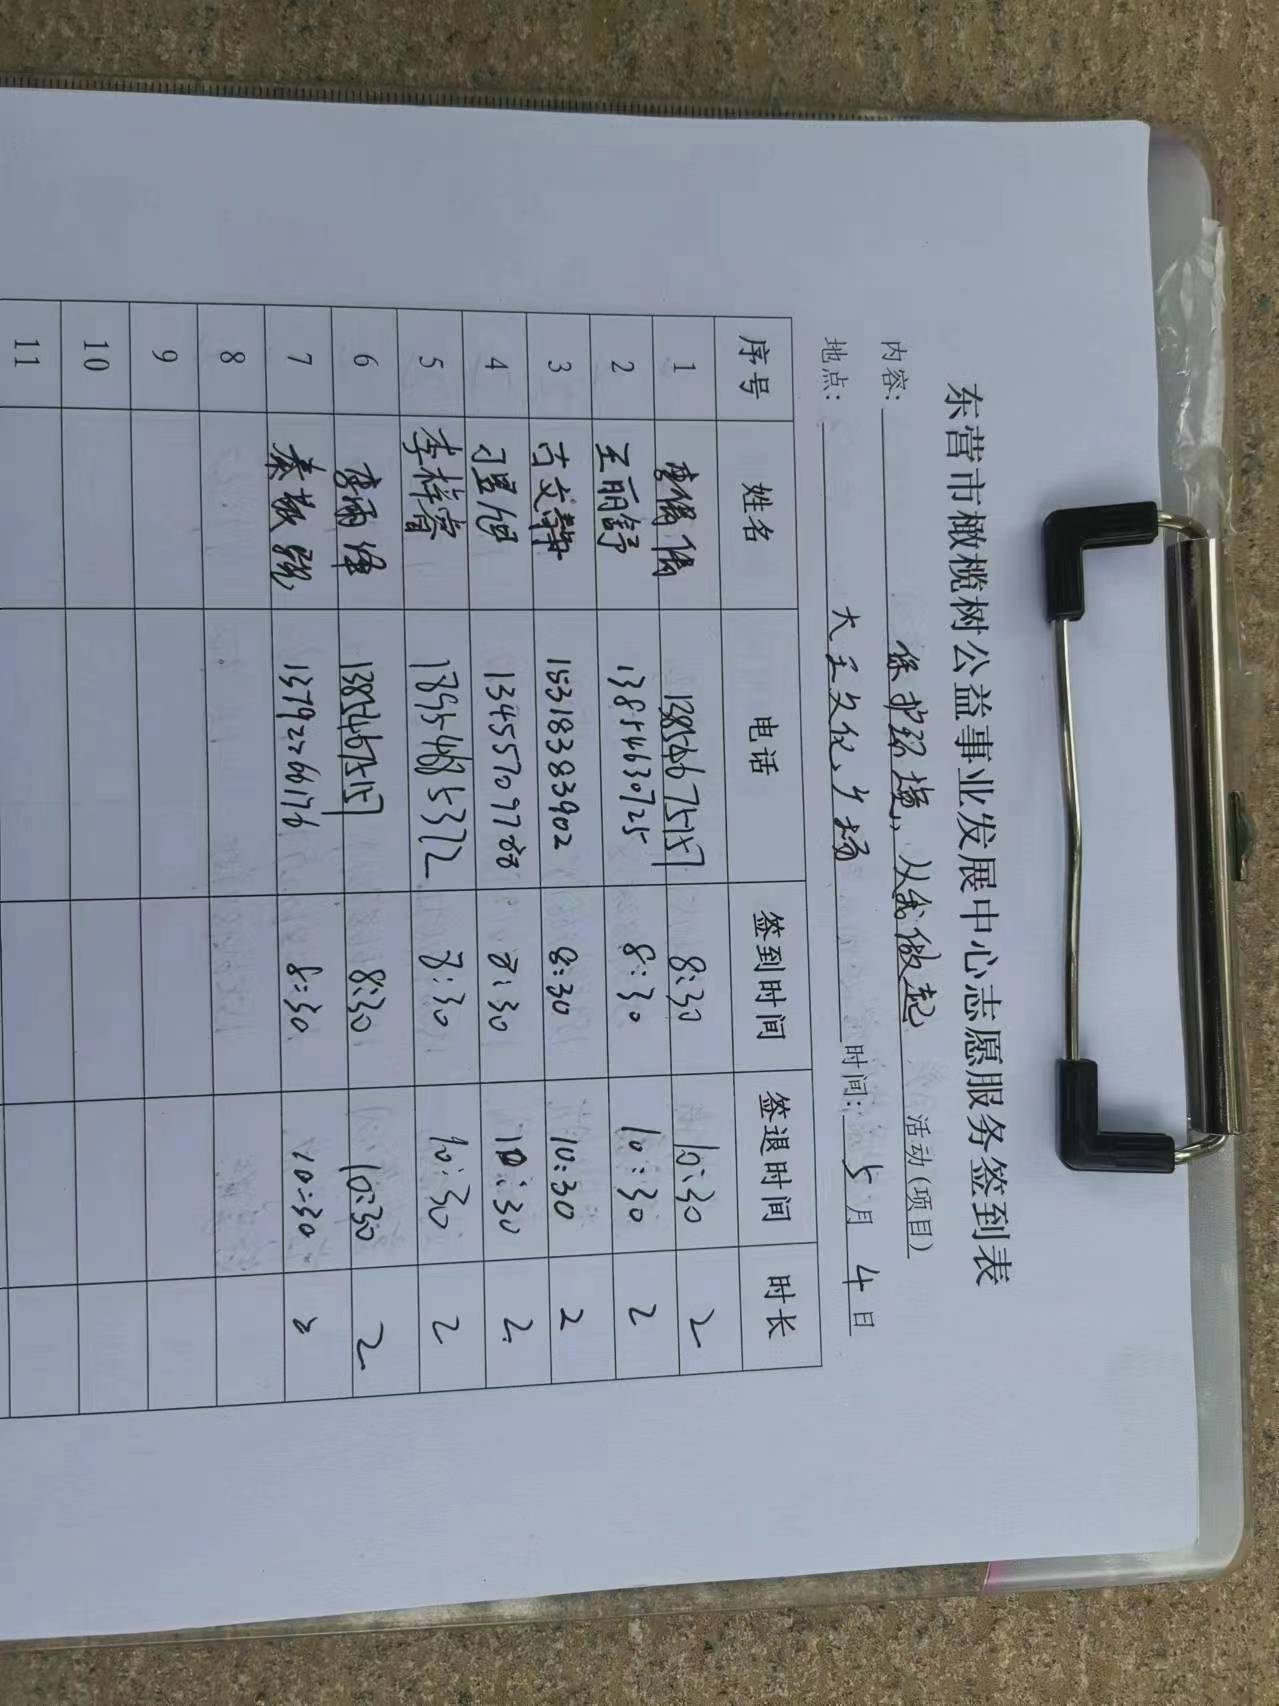 东营市橄榄树公益事业发展中心志愿服务签到表
内容： 保护环境，从我做起 活动（项目）
地点： 大王文化广场 时间： 5 月 4 日
序号 姓名 电话 签到时间 签退时间 时长
1 李倩倩 13854675157 8:30 10:30 2
2 王丽舒 13854630725 8:30 10:30 2
3 古文静 15318383902 8:30 10:30 2
4 13455709788 8:30 10:30 2
5 李梓睿 18954685372 8:30 10:30 2
6 李雨泽 13854675157 8:30 10:30 2
7 13792266176 8:30 10:30 2
8
9
10
11